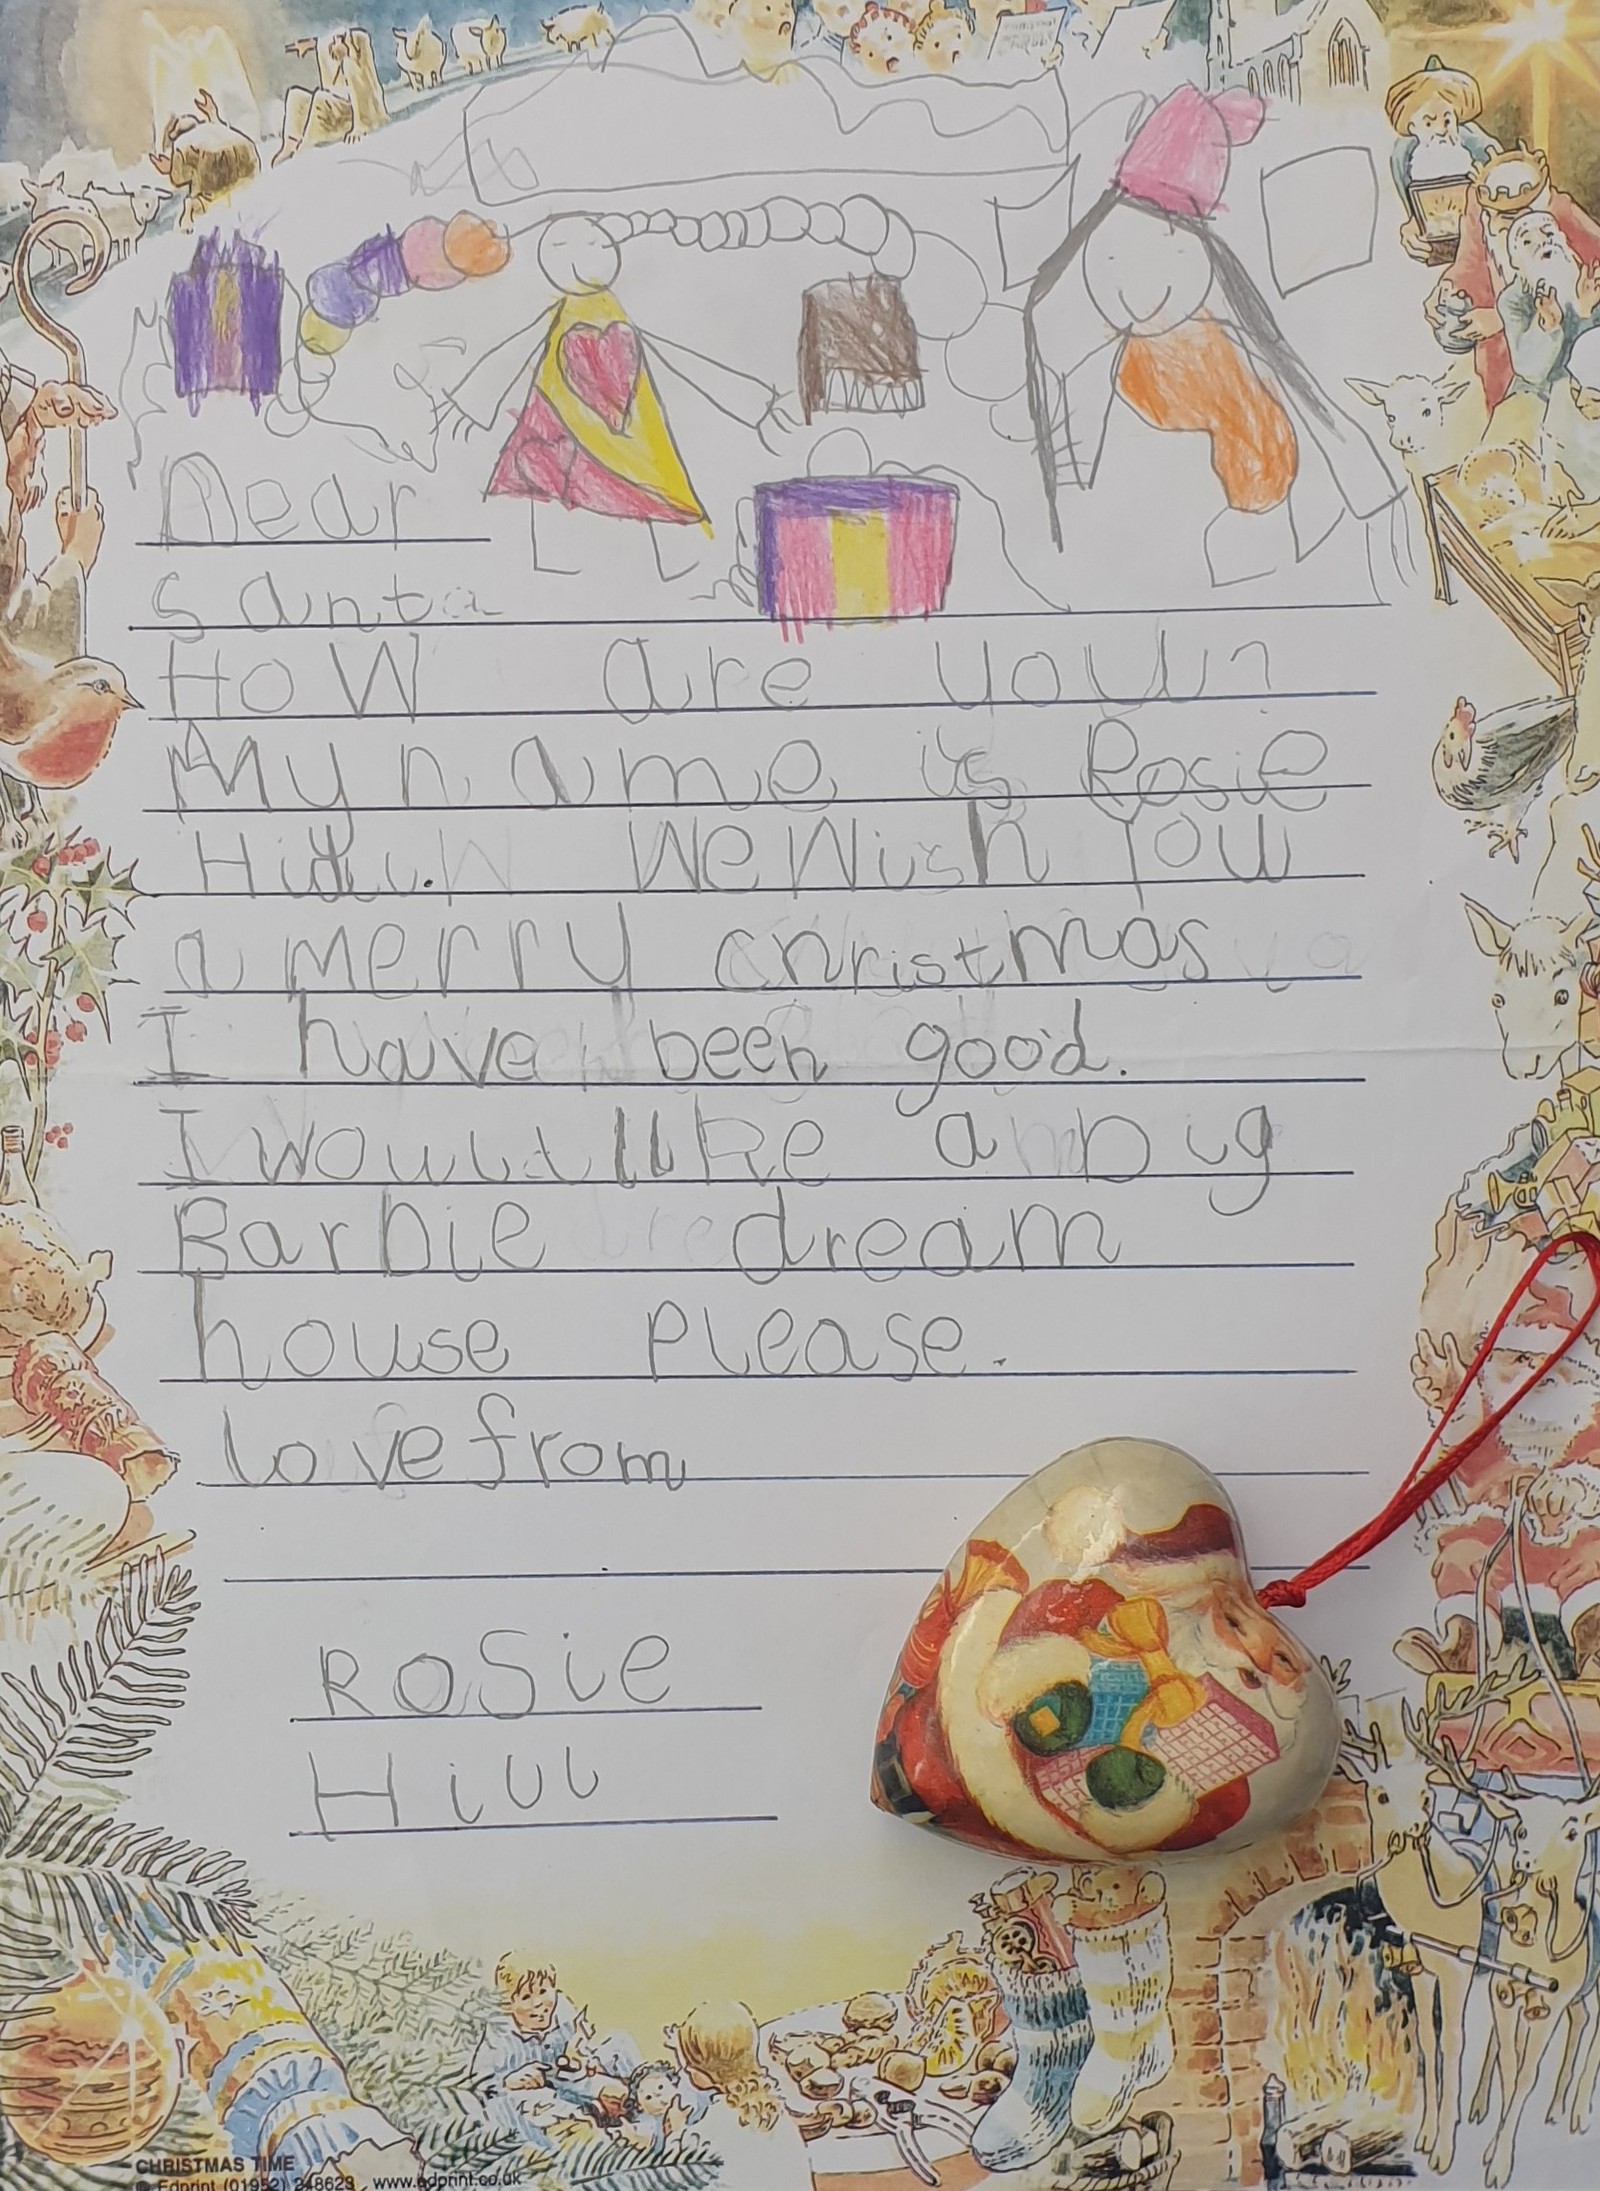 Dear
santa
How are you?
My name is Rosie
Hill. We Wish You
a merry christmas
I have been good.
I would like a big
Barbie dream
house please.
love from
Rosie
Hill
CHRISTMAS TIME
© Edprint (01952) 248623 www.edprint.co.uk